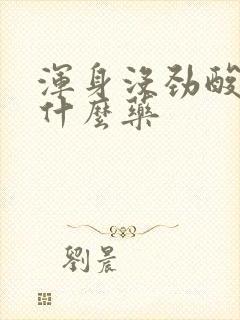 渾身沒勁酸
什麼藥
劉晨